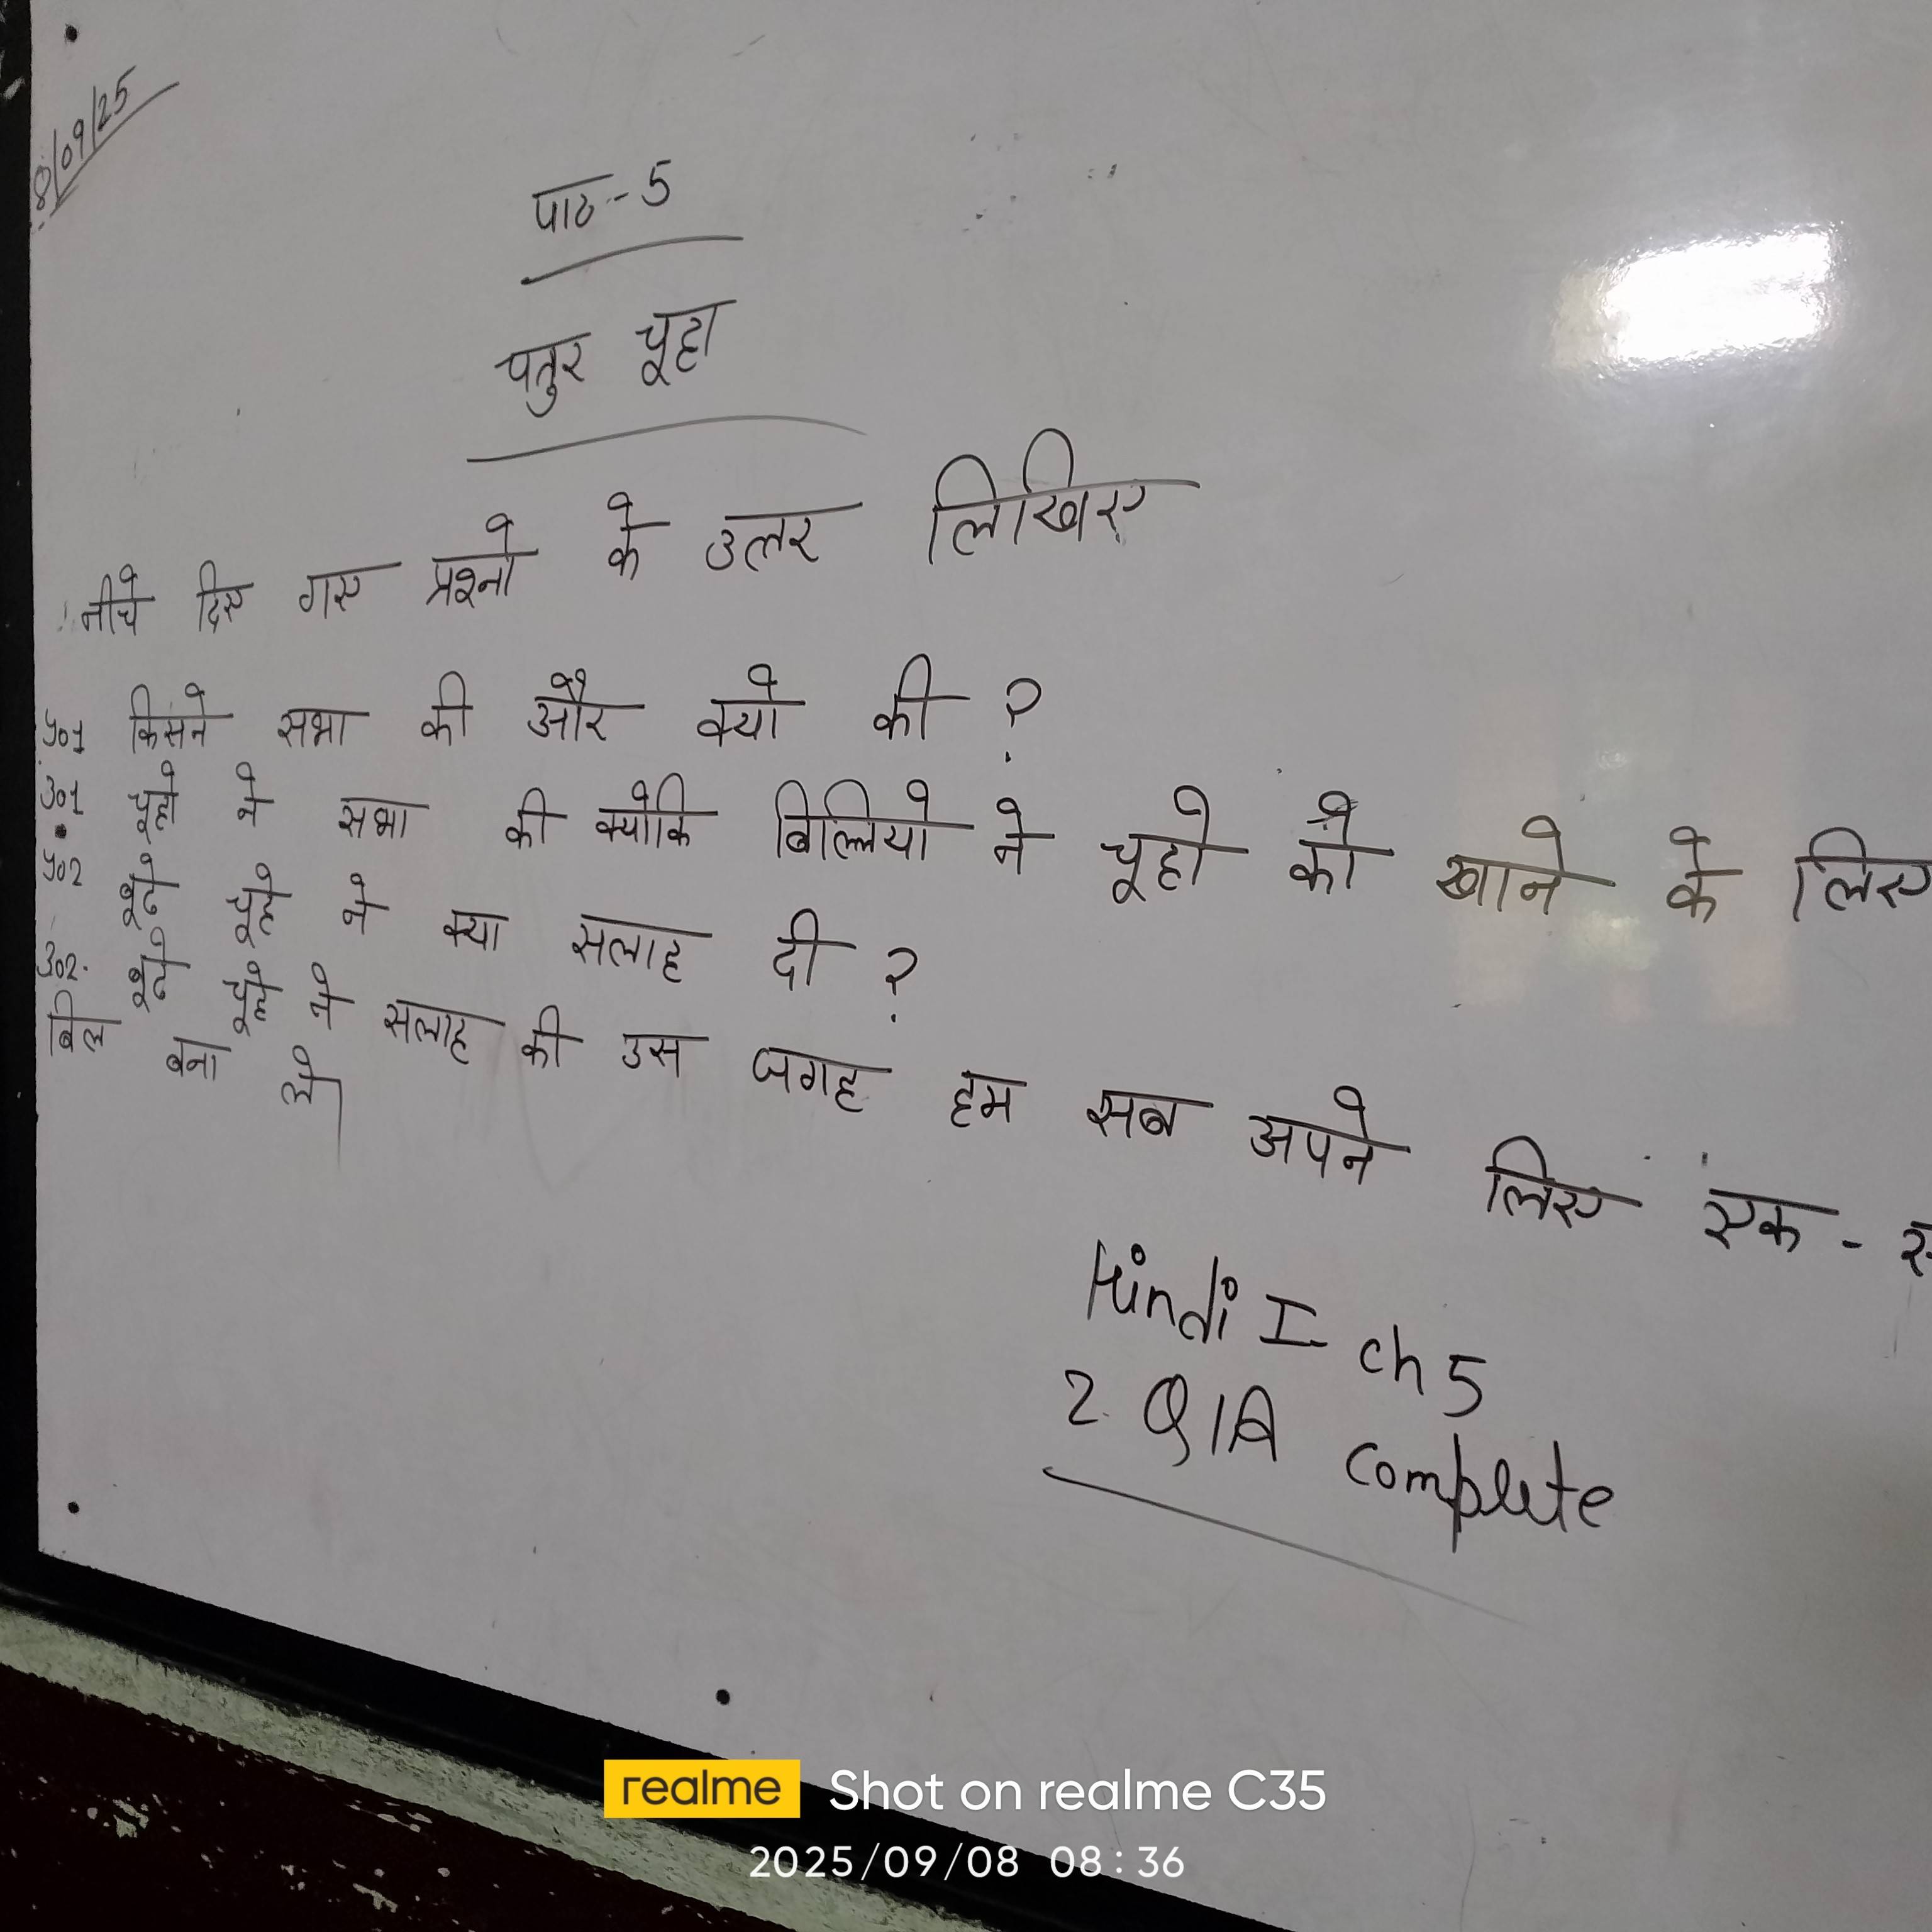 8/09/25
पाठ-5
चतुर चूहा
नीचे दिए गए प्रश्नो के उत्तर लिखिए
प्र01 किसने सभा की और क्यो की ?
उ01 चूहो ने सभा की क्योकि बिल्लियो ने चूहो को खाने के लिए
प्र02 बूढे चूहे ने क्या सलाह दी ?
उ02. बूढे चूहे ने सलाह की उस जगह हम सब अपने लिए एक -
बिल बना ले।
Hindi I ch 5
2 Q/A complete
realme Shot on realme C35
2025/09/08 08:36